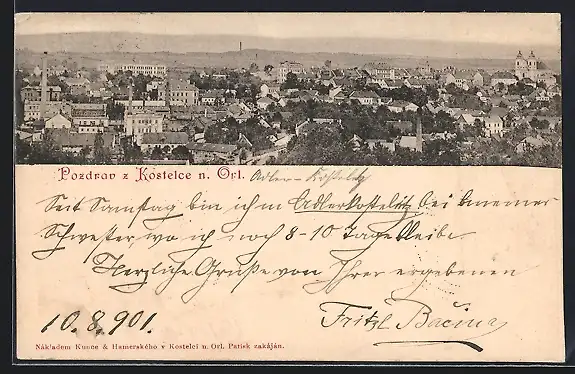 Pozdrav z Kostelce n. Orl. Adler-Kosteletz
Seit Samstag bin ich in Adlerkosteletz bei meiner
Schwester, wo ich noch 8-10 Tage bleibe.
Herzliche Grüße von Ihrer ergebenen
Fritzl Bačina
10.8.901.
Nákladem Kunce & Hamerského v Kostelci n. Orl. Patisk zakázán.